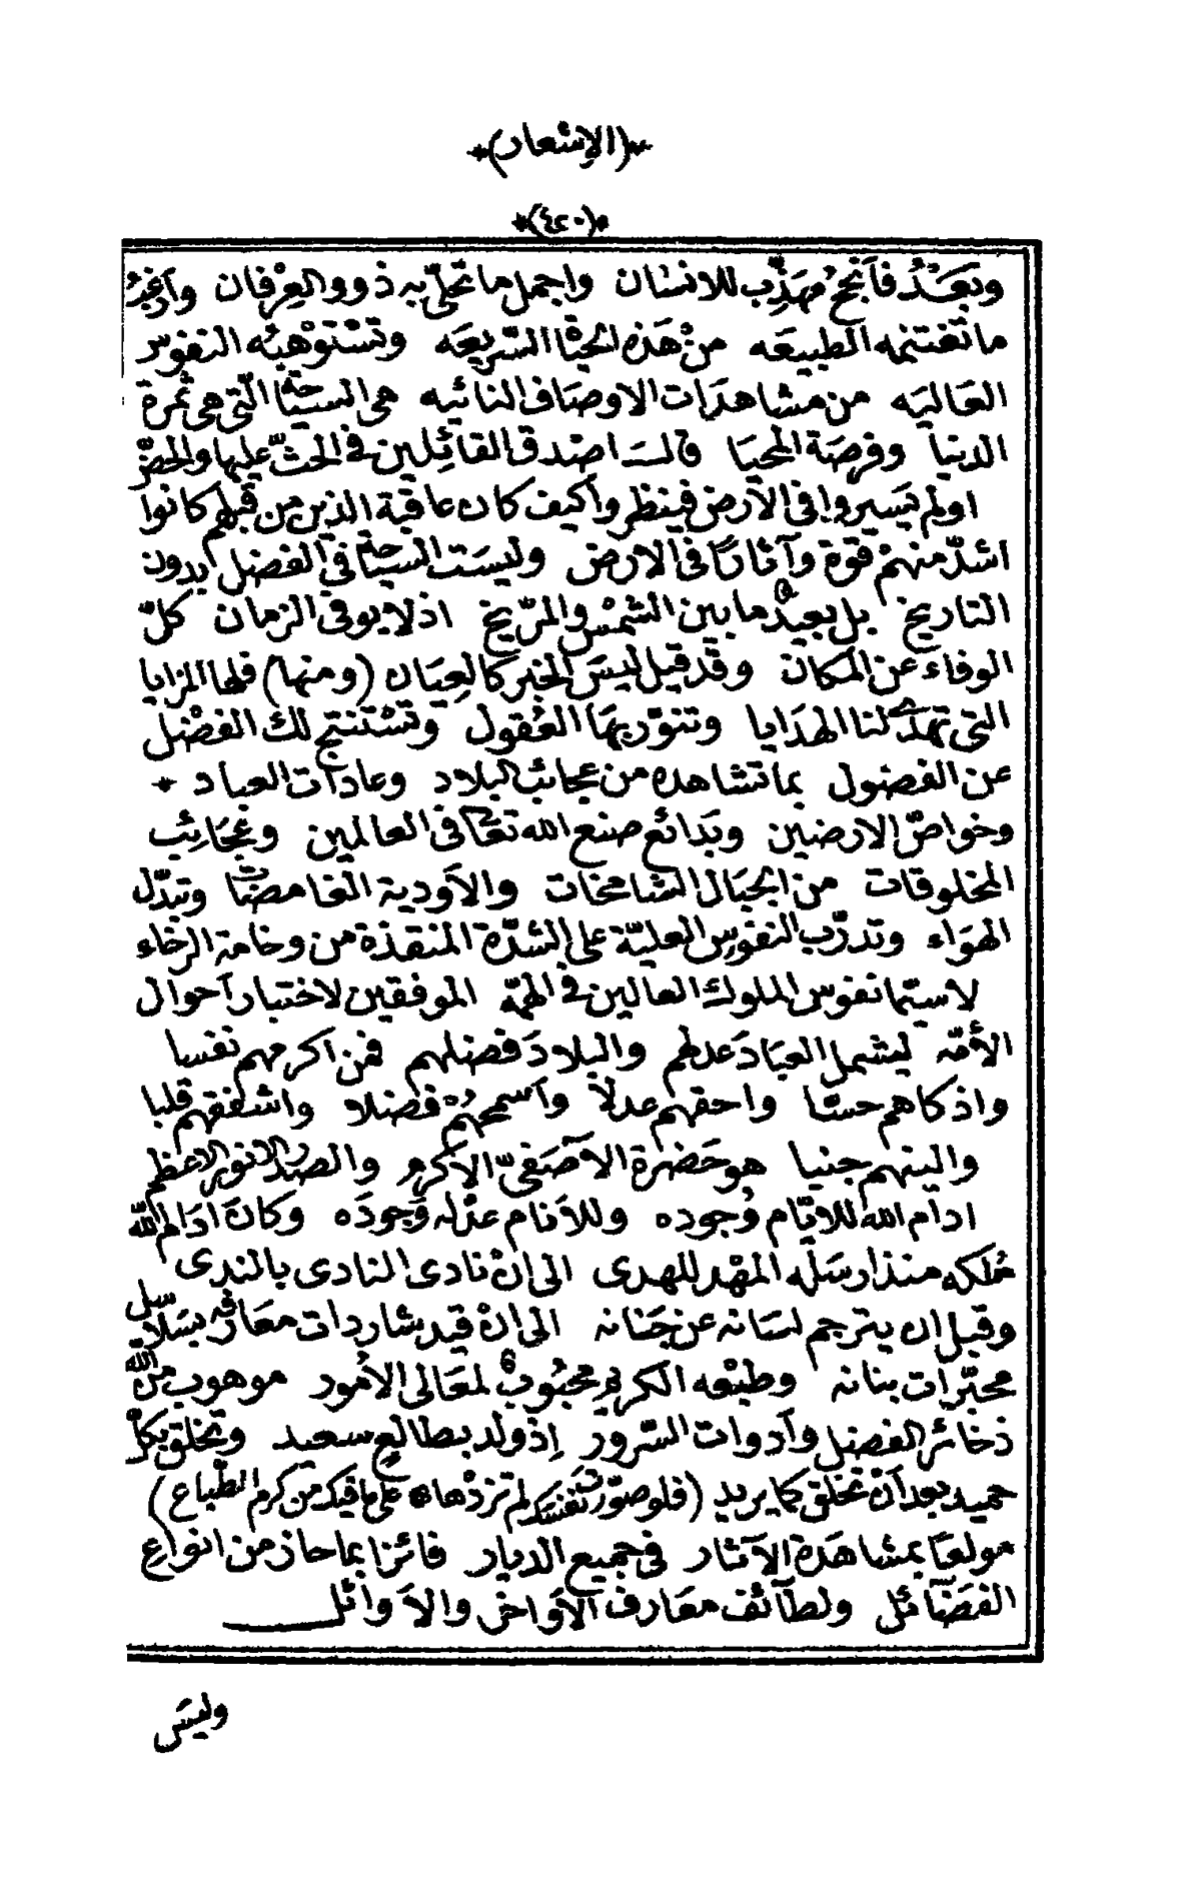 *(الإشعار)*
*(٤٢٠)*
وبَعَدُ فأنجح مهَذِّب للانسان واجمل ما تحلّى به ذوو العِرْفان وأغزر
ما تغتنمه الطبيعَه من هَذه الحياة السّريعَه وتَسْتَوْهِبُه النفوس
العَاليَه من مشاهدَات الاوصَاف النائيه هى السيَاحَة الّتى هى ثمرة
الدنيا وفرصَة المحيَا قالَ اصْدق القائلين فى الحثّ عليها والحضّ
اولم يَسيروا فى الأرض فينظروا كيف كان عاقبة الذين من قبلهم كانوا
اشدّ منهمْ قوة وآثارًا فى الارض وليسَت السيَاحَة فى الفضل بدون
التاريخ بل بعيدٌ ما بين الشمْس والمرّيخ اذ لا يوفى الزمان كلّ
الوفاء عن المكان وقَد قيل ليسَ الخبر كالعِيَان (ومنها) فلها المزايا
التى تهدى لنا الهدَايا وتنوّر بهَا العُقول وتسْتنتج لك الفضْل
عن الفضول بما تشاهده من عجائب البلاد وعادات العباد *
وخواصّ الارضين وبَدائع صنع الله تعَالى فى العالمين وعجَائِب
المخلوقات من الجبَال الشامخات والأودية الغامضَات وتبدّل
الهوَاء وتدرّب النفوس العليّة على الشدّة المنقذة من وخامة الرخاء
لاسيّما نفوس الملوك العالين فى الهمّه الموفقين لاختبار أحوال
الأمّه ليشمل العبَادَ عدلهم والبلادَ فضلهم فمن اكرمهم نفسا
واذكاهم حسّا واحقهم عدلا وأسمحهم فضلا واشفقهم قلبا
والينهم جنبا هو حَضرة الآصَفىّ الأكرم والصدر الانور الاعظم
ادام الله للايّام وُجوده وللأنام عدْله وَجودَه وكانَ ادَام الله
مُلكه منذ ارسَله المهْد للهدى الى انْ نادى النادى بالندى
وقبل ان يترجم لسَانه عن جَنانه الى انْ قيد شاردات معَارفه بسَلاسل
محبّرات بنانه وطبْعه الكريم محبُوبٌ لمعَالى الأُمور موهوب من الله
ذخائر الفضل وأدوات السّرور إذ ولد بطالعٍ سعيد وتخلق بكلّ
حميد بعد أنْ تخلق كما يريد (فلو صوّرت نفسَك لم تزدْها * على ما فيك من كرم الطّباع)
مولعًا بمشاهَدة الآثار فى جميع الديار فائزا بما حاز من انواع
الفضَائل ولطآئف معَارف الأواخر والأوائل
وليسَ